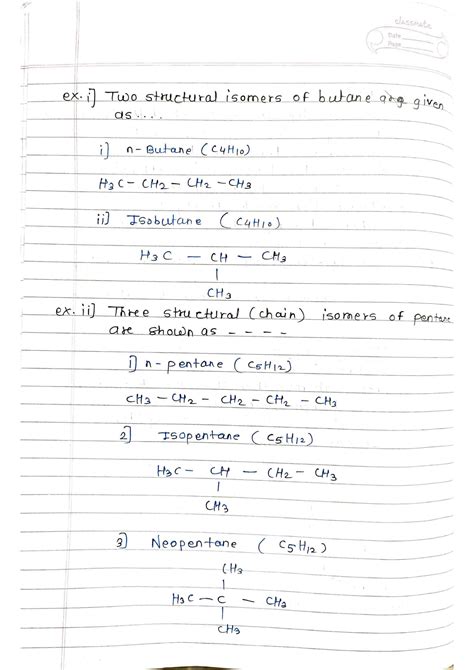 classmate
Date
Page
ex. i] Two structural isomers of butane are given
as ....
i] n-Butane (C4H10)
H3C - CH2 - CH2 - CH3
ii) Isobutane (C4H10)
H3C - CH - CH3
|
CH3
ex. ii] Three structural (chain) isomers of pentane
are shown as - - - -
1] n-pentane (C5H12)
CH3 - CH2 - CH2 - CH2 - CH3
2] Isopentane (C5H12)
H3C - CH - CH2 - CH3
|
CH3
3] Neopentane (C5H12)
CH3
|
H3C - C - CH3
|
CH3